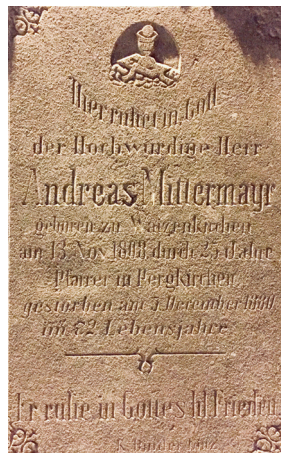 Hier ruhet in Gott
der Hochwürdige Herr
Andreas Mittermayr
geboren zu Waizenkirchen
am 13. Nov. 1808, durch 25 Jahre
Pfarrer in Pergkirchen
gestorben am 5. December 1880
im 82 Lebensjahre
Er ruhe in Gottes hl. Frieden